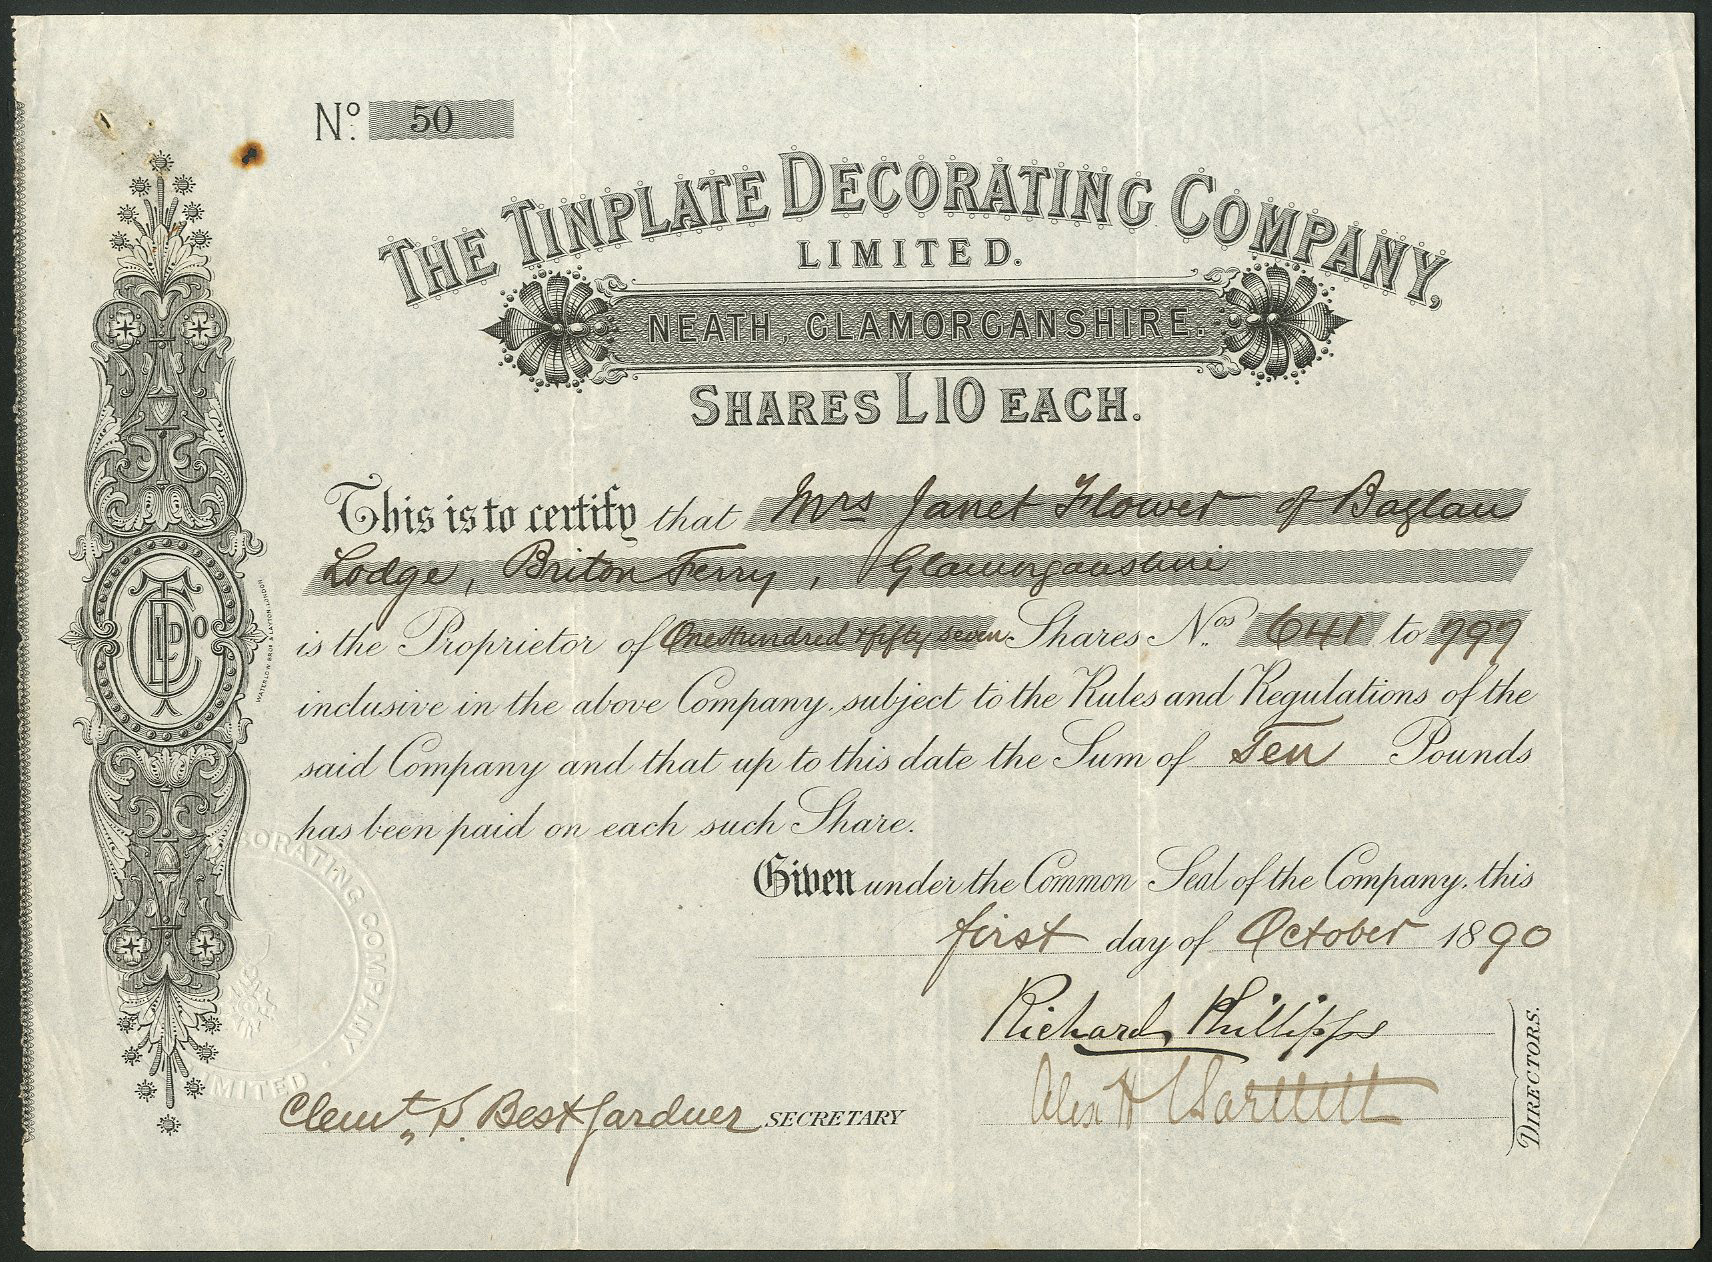 No. 50
THE TINPLATE DECORATING COMPANY,
LIMITED.
NEATH, GLAMORGANSHIRE.
SHARES L10 EACH.
This is to certify that Mrs Janet Flower of Baglan
Lodge, Briton Ferry, Glamorganshire
is the Proprietor of One Hundred & fifty seven Shares Nos. 641 to 797
inclusive in the above Company, subject to the Rules and Regulations of the
said Company and that up to this date the Sum of Ten Pounds
has been paid on each such Share.
Given under the Common Seal of the Company, this
first day of October 1890
Richard Phillipps
Alex H Bartlett
DIRECTORS.
Clemt. S. Best Gardner SECRETARY
WATERLOW BROS & LAYTON, LONDON
ORATING COMPANY
LIMITED